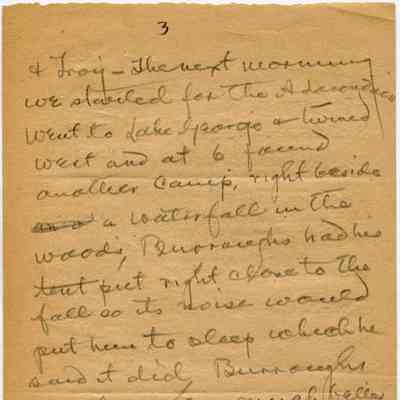 3
& Troy - The next morning
we started for the Adirondacks
went to Lake George & turned
west and at 6 found
another camp, right beside
and a a waterfall in the
woods, Burroughs had his
tent put right close to the
fall so its noise would
put him to sleep which he
said it did, Burroughs